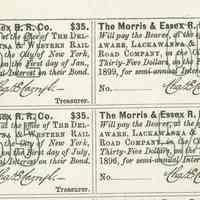 ex R. R. Co. $35.
at the office of THE DEL-
& WESTERN RAIL
the City of New York,
on the First day of Jan.,
Interest on their Bond.
Treasurer.
The Morris & Essex R.
Will pay the Bearer, at the
AWARE, LACKAWANNA &
ROAD COMPANY, on the
Thirty-Five Dollars, on the
1899, for semi-annual Inter
No.
R. R. Co. $35.
at the office of THE DEL-
& WESTERN RAIL
the City of New York,
on the First day of July,
Interest on their Bond.
Treasurer.
The Morris & Essex R.
Will pay the Bearer, at the
AWARE, LACKAWANNA &
ROAD COMPANY, in the
Thirty-Five Dollars, on the
1896, for semi-annual Inter
No.